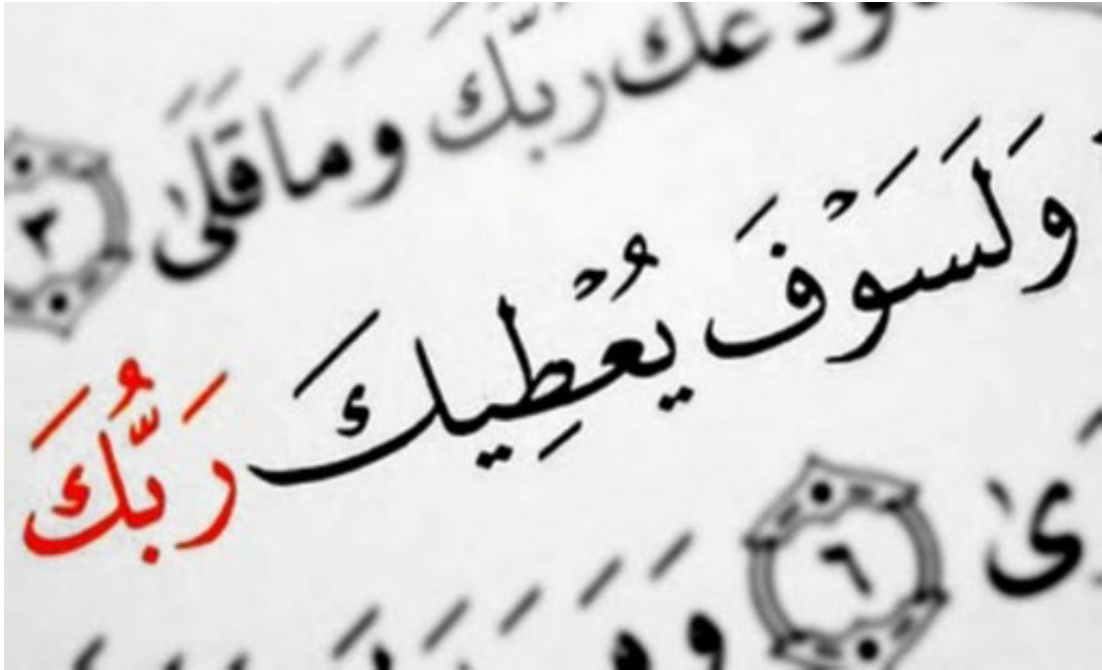 ودعك ربك وما قلىٰ ٣
وَلَسَوْفَ يُعْطِيكَ رَبُّكَ
ىٰ ٦